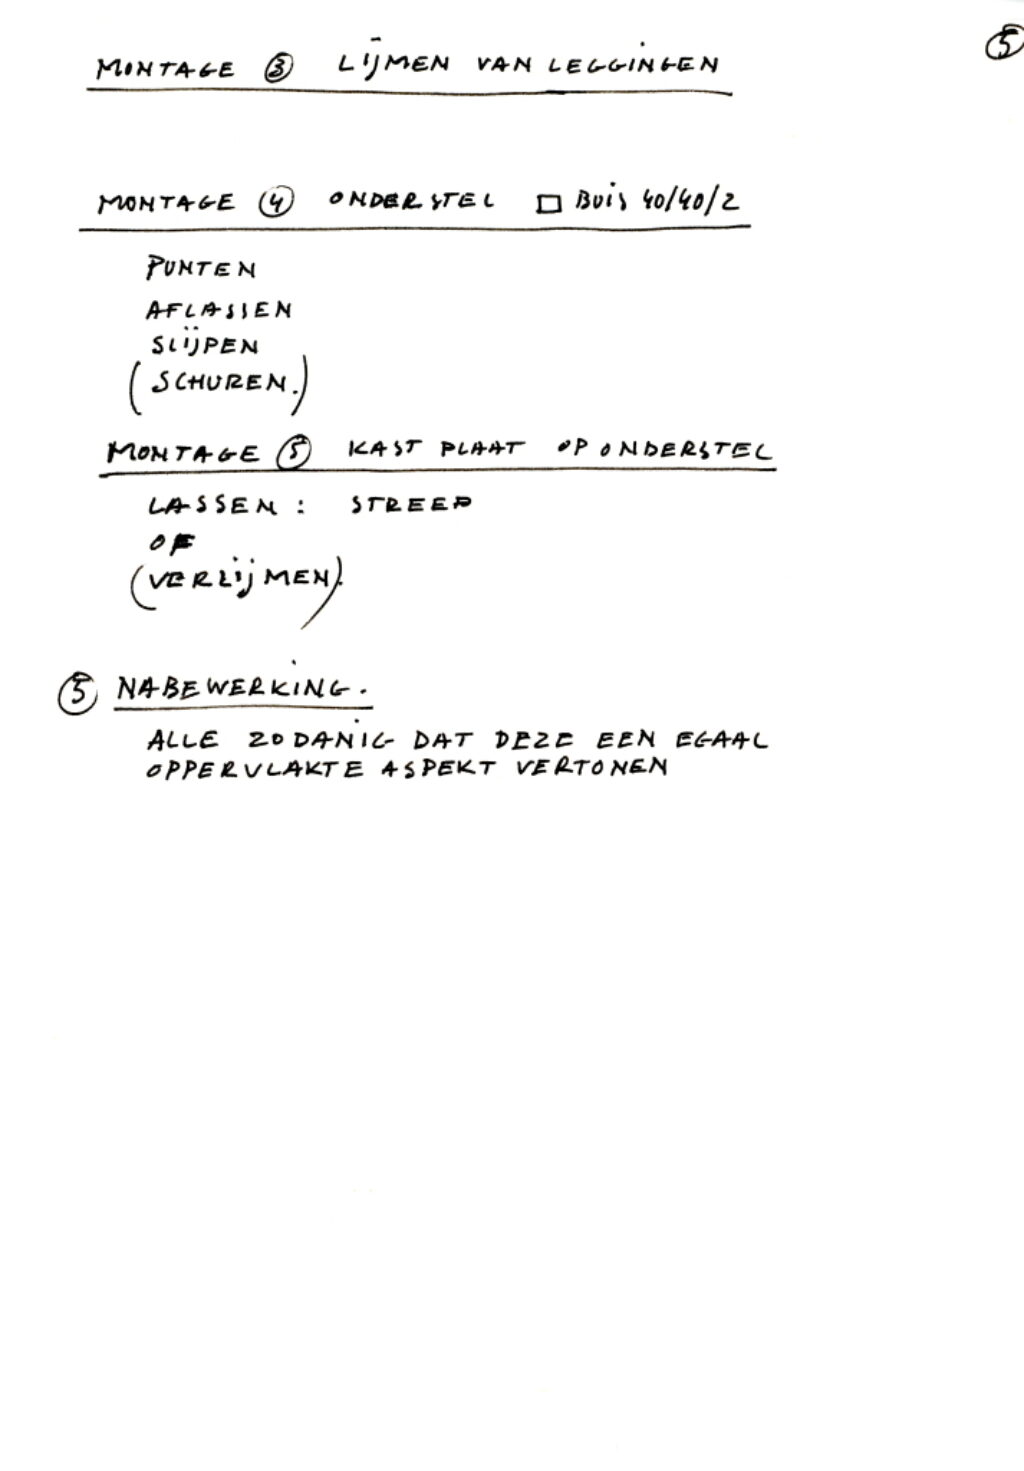 ⑤
MONTAGE ③ LIJMEN VAN LEGGINGEN
MONTAGE ④ ONDERSTEL □ BUIS 40/40/2
PUNTEN
AFLASSEN
SLIJPEN
(SCHUREN.)
MONTAGE ⑤ KAST PLAAT OP ONDERSTEL
LASSEN: STREEP
OF
(VERLIJMEN).
⑤ NABEWERKING.
ALLE ZODANIG DAT DEZE EEN EGAAL
OPPERVLAKTE ASPEKT VERTONEN